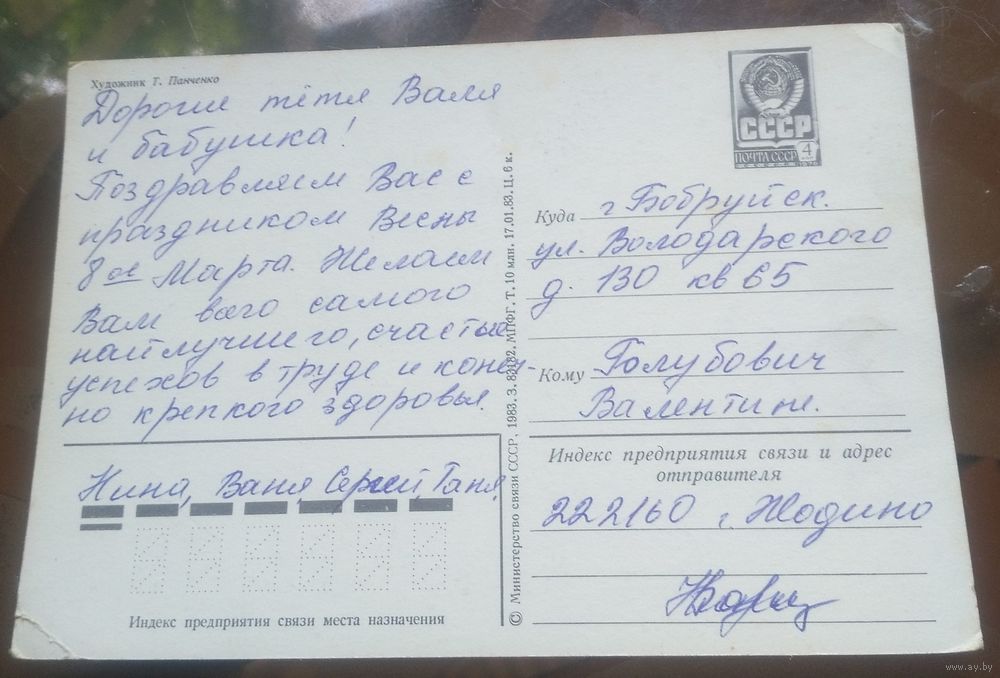 Художник Т. Панченко
Дорогие тётя Валя
и бабушка!
Поздравляем Вас с
праздником Весны
8ое Марта. Желаем
Вам всего самого
наилучшего, счастья
успехов в труде и конеч-
но крепкого здоровья.
Нина, Ваня, Сергей, Таня
Индекс предприятия связи места назначения
© Министерство связи СССР, 1983. З. 83182. МПФГ. Т. 10 млн. 17.01.83. Ц. 6 к.
СССР
ПОЧТА СССР 4
1976
Куда г Бобруйск.
ул. Володарского
д. 130 кв 65
Кому Голубович
Валентине.
Индекс предприятия связи и адрес
отправителя
222160 г. Жодино
www.ay.by